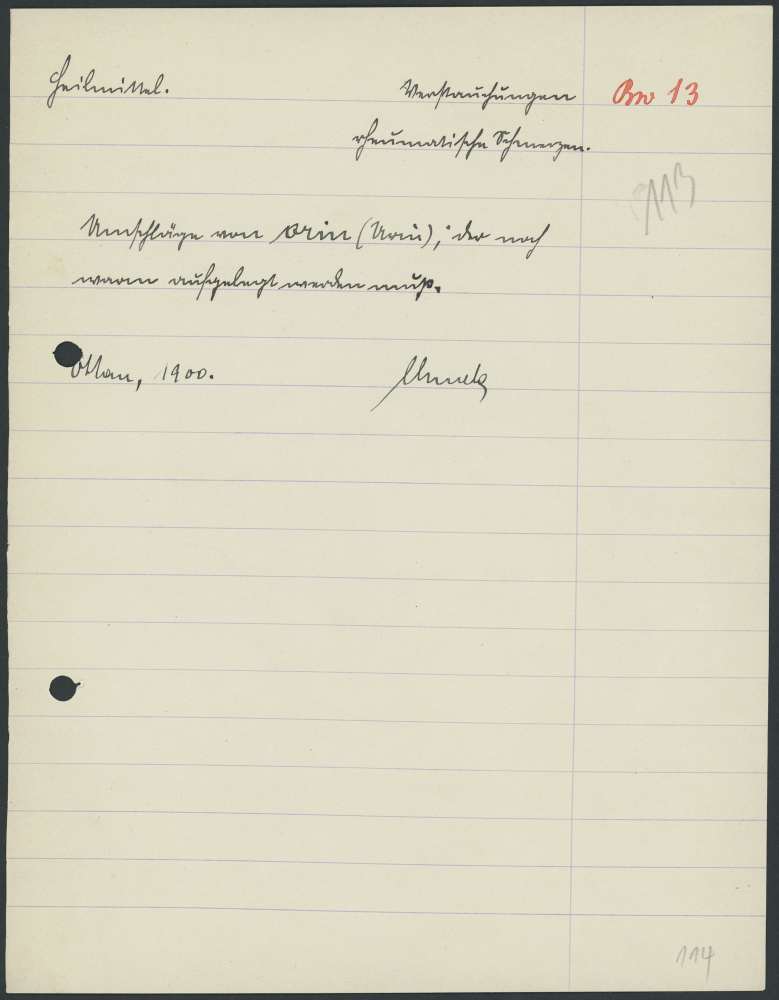 Heilmittel.
Verstauchungen
Bw 13
rheumatische Schmerzen.
113
Umschläge von Orin (Urin), der noch
warm aufgelegt werden muß.
Ottau, 1900.
114